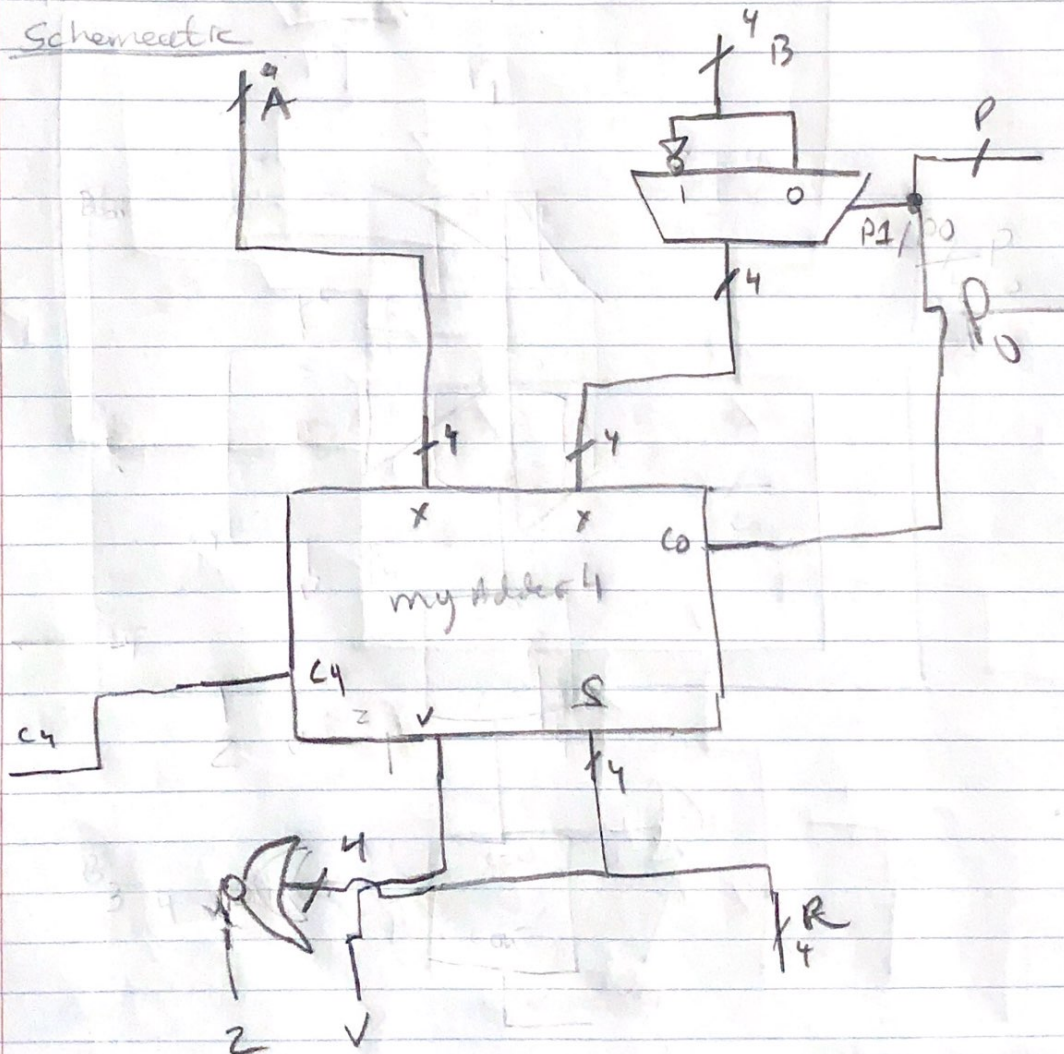 Schemeatic
4
A
4
B
P
1
0
P1/P0
4
P0
4
4
X
Y
C0
my Adder 4
C4
V
S
C4
4
4
R
4
Z
V